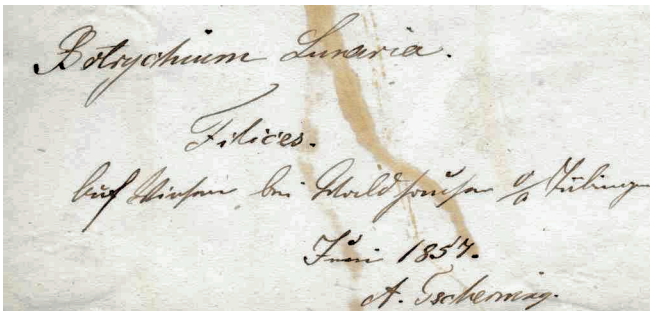 Botrychium Lunaria.
Filices.
Auf Wiesen bei Waldhausen o/a Tübingen
Juni 1857.
A. Tscherning.